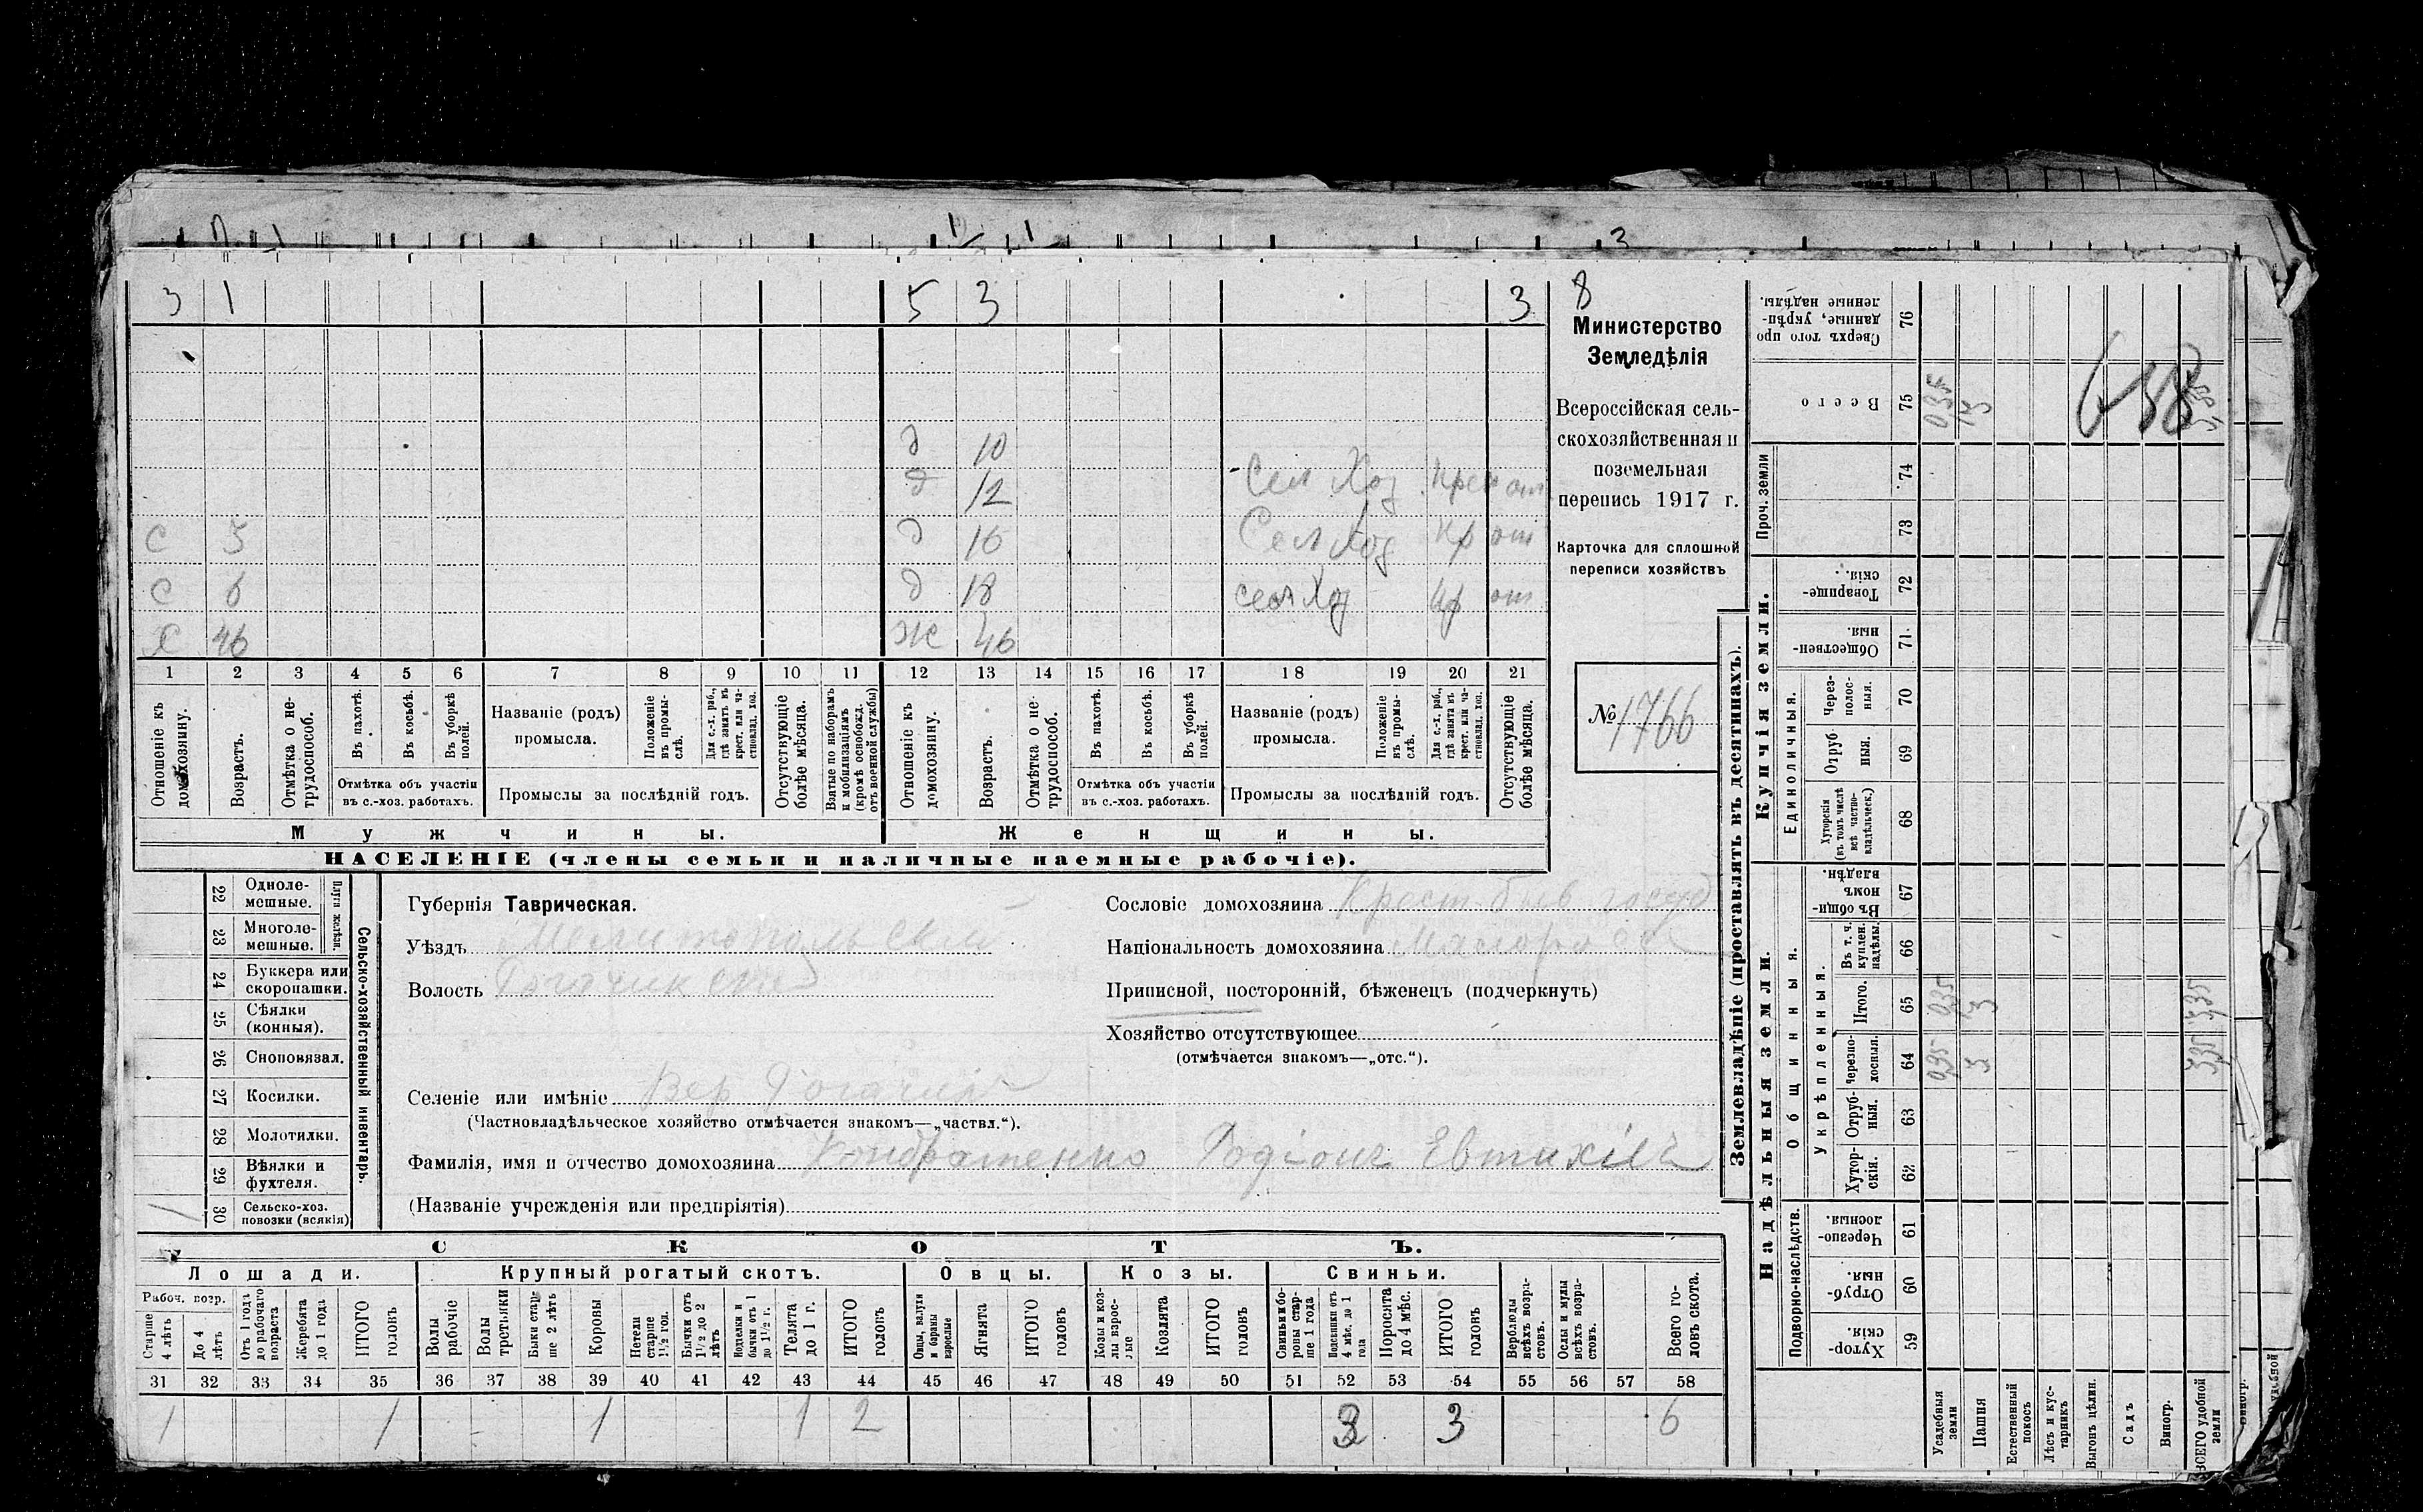 3 1 5 3 3 8
Министерство
Земледѣлія
Всероссійская сель-
скохозяйственная и
поземельная
перепись 1917 г.
Карточка для сплошной
переписи хозяйствъ
№ 1766
д 10
д 12 Сел Хоз
с 5 д 16 Сел Хоз кр от
с 6 д 18 сел Хоз кр от
х 46 ж 46
1 2 3 4 5 6 7 8 9 10 11 12 13 14 15 16 17 18 19 20 21
Отношеніе къ домохозяину.
Возрастъ.
Отмѣтка о не-трудоспособ.
Въ пахотѣ.
Въ косьбѣ.
Въ уборкѣ полей.
Отмѣтка объ участіи
въ с.-хоз. работахъ.
Названіе (родъ)
промысла.
Положеніе въ промы-слѣ.
Для с.-х. раб., гдѣ занятъ въ крест. или ча-стновлад. хоз.
Промыслы за послѣдній годъ.
Отсутствующіе болѣе мѣсяца.
Взятые по наборамъ и мобилизаціямъ (кромѣ освобожд. отъ военной службы)
Отношеніе къ домохозяину.
Возрастъ.
Отмѣтка о не-трудоспособ.
Въ пахотѣ.
Въ косьбѣ.
Въ уборкѣ полей.
Отмѣтка объ участіи
въ с.-хоз. работахъ.
Названіе (родъ)
промысла.
Положеніе въ промы-слѣ.
Для с.-х. раб., гдѣ занята въ крест. или ча-стновлад. хоз.
Промыслы за послѣдній годъ.
Отсутствующіе болѣе мѣсяца.
Мужчины. Женщины.
НАСЕЛЕНІЕ (члены семьи и наличные наемные рабочіе).
22 Одноле-мешные.
23 Многоле-мешные.
Плуги желѣзн.
24 Буккера или скоропашки.
25 Сѣялки (конныя).
26 Сноповязал.
27 Косилки.
28 Молотилки.
29 Вѣялки и фухтеля.
1 30 Сельско-хоз. повозки (всякія)
Сельско-хозяйственный инвентарь.
Губернія Таврическая.
Уѣздъ Мелитопольскій
Волость Рогачикской
Селеніе или имѣніе Вер Рогачик
(Частновладѣльческое хозяйство отмѣчается знакомъ—„частвл.“).
Фамилія, имя и отчество домохозяина Кондратенко Родіонъ Евтихіев
(Названіе учрежденія или предпріятія)
Сословіе домохозяина Крест. быв госуд
Національность домохозяина Малоросс
Приписной, посторонній, бѣженецъ (подчеркнуть)
Хозяйство отсутствующее
(отмѣчается знакомъ—„отс.“).
СКОТЪ.
Лошади. Крупный рогатый скотъ. Овцы. Козы. Свиньи.
Рабоч. возр.
Старше 4 лѣтъ
До 4 лѣтъ
Отъ 1 года до рабочаго возраста
Жеребята до 1 года
ИТОГО головъ
Волы рабочіе
Волы третьяки
Быки стар-ше 2 лѣтъ
Коровы
Нетели старше 1½ год.
Бычки отъ 1½ до 2 лѣтъ
бычки отъ 1 до 1½ г.
Телята до 1 г.
ИТОГО головъ
Овцы, валухи и бараны взрослые
Ягнята
ИТОГО головъ
Козы и коз-лы взрос-лые
Козлята
ИТОГО головъ
Свиньи бо-ровы стар-ше 1 года
Подсвинки отъ 4 мѣс. до 1 года
Поросята до 4 мѣс.
ИТОГО головъ
Верблюды всѣхъ возра-стовъ.
Ослы и мулы всѣхъ возра-стовъ.
Всего го-ловъ скота.
31 32 33 34 35 36 37 38 39 40 41 42 43 44 45 46 47 48 49 50 51 52 53 54 55 56 57 58
1 1 1 1 2 3 3 6
Землевладѣніе (проставлять въ десятинахъ).
Надѣльныя земли. Купчія земли.
Проч. земли
Подворно-наслѣдств.
Общинныя.
Укрѣпленныя.
Единоличныя.
Сверхъ того про данные, укрѣп-ленные надѣлы. 76
Всего 75
74
73
Товарище-скія. 72
Обществен-ныя. 71
Через-полос-ныя. 70
Отруб-ныя. 69
Хуторскія (въ томъ числѣ всѣ частно-владѣльческ.) 68
Въ общи-номъ владѣн. 67
Въ т. ч. куплен. надѣлы. 66
Итого. 65
Черезпо-лосныя. 64
Отруб-ныя. 63
Хутор-скія. 62
Черезпо-лосныя. 61
Отруб-ныя. 60
Хутор-скія. 59
Усадебныя земли
Пашня
Естественный покосъ
Лѣсъ и кус-тарникъ
Выгонъ цѣлин.
Садъ
Виногр.
ВСЕГО удобной земли